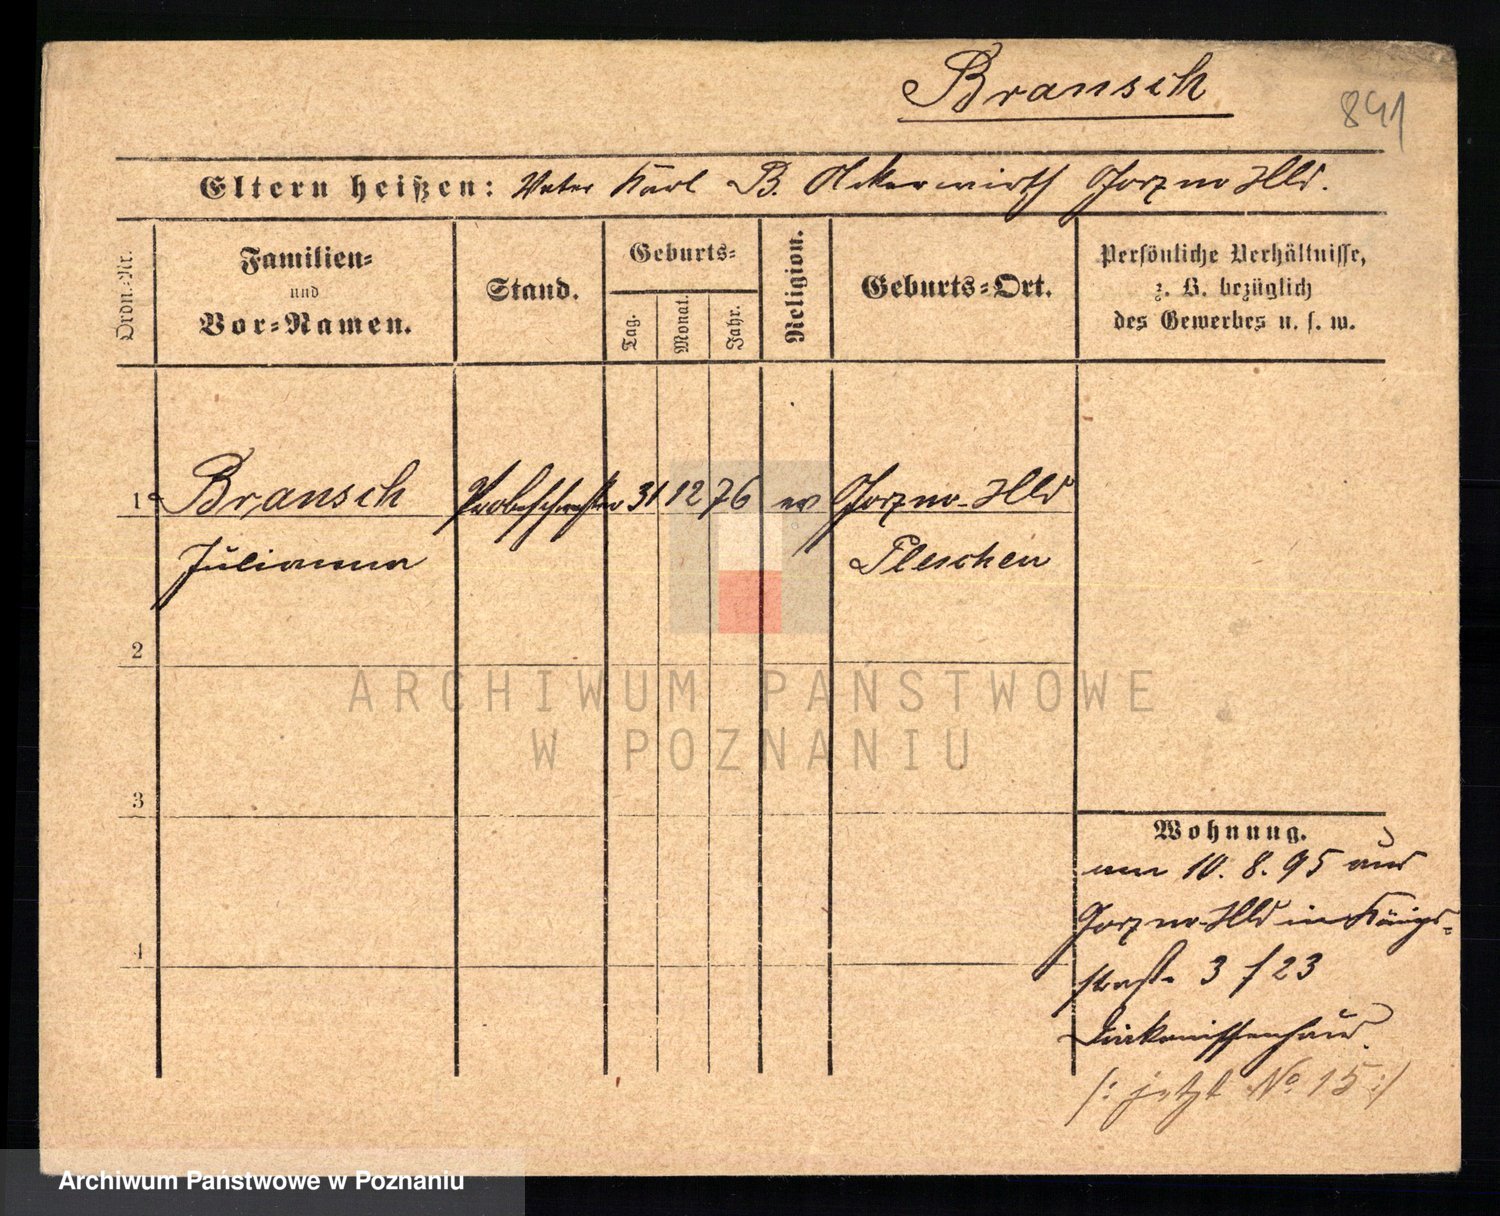 Bransch
891
Eltern heißen: Vater Karl B. Ackerwirth Gorzno Hld.
Ordn.-Nr.
Familien-
und
Vor-Namen.
Stand.
Geburts-
Tag.
Monat.
Jahr.
Religion.
Geburts-Ort.
Persönliche Verhältnisse,
z. B. bezüglich
des Gewerbes u. s. w.
1 Bransch Probeschwester 31 12 76 ev Gorzno-Hld
Julianna Pleschen
2
3
4
Wohnung.
am 10. 8. 95 aus
Gorzno-Hld in Königs-
straße 3 f 23
Diakonissenhaus.
/: jetzt No 15 :/
ARCHIWUM PAŃSTWOWE
W POZNANIU
Archiwum Państwowe w Poznaniu